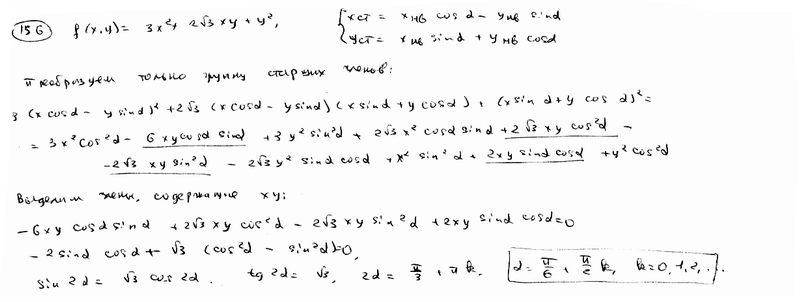 156 f(x,y) = 3x² + 2√3 xy + y², { xст = xнв cos α − yнв sin α
yст = xнв sin α + yнв cos α
Преобразуем только группу старших членов:
3 (x cos α − y sin α)² + 2√3 (x cos α − y sin α)(x sin α + y cos α) + (x sin α + y cos α)² =
= 3x² cos² α − 6xy cos α sin α + 3y² sin² α + 2√3 x² cos α sin α + 2√3 xy cos² α −
− 2√3 xy sin² α − 2√3 y² sin α cos α + x² sin² α + 2xy sin α cos α + y² cos² α
Выделим члены, содержащие xy:
−6xy cos α sin α + 2√3 xy cos² α − 2√3 xy sin² α + 2xy sin α cos α = 0
−2 sin α cos α + √3 (cos² α − sin² α) = 0,
sin 2α = √3 cos 2α. tg 2α = √3, 2α = π/3 + πk. α = π/6 + π/2 k, k = 0, 1, 2, ...